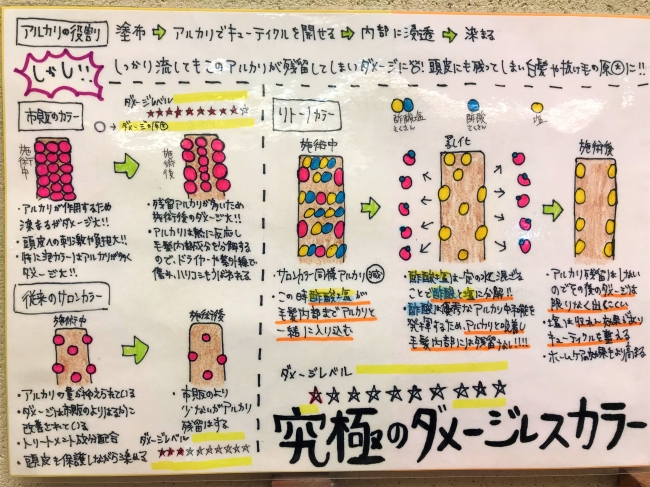 アルカリの役割
塗布→アルカリでキューティクルを開せる→内部に浸透→染まる
しかし!!
しっかり流してもこのアルカリが残留してしまいダメージに!! 頭皮にも残ってしまい白髪や抜け毛の原因に!!
市販のカラー
ダメージレベル
☆☆☆☆☆☆☆☆☆☆
ダメージの原因
施術中
施術後
・アルカリが作用するため
染まるがダメージ大!!
・頭皮への刺激や負担大!!
・特に泡カラーはアルカリが多く
ダメージ大!!
・残留アルカリが多いため
施術後のダメージ大!!
・アルカリは熱に反応し
毛髪内部成分を分解する
ので、ドライヤーや紫外線で
従来のサロンカラー
施術中
施術後
・アルカリの量が抑えられている
・ダメージは市販のよりはるかに
改善されている
・トリートメント成分配合
・頭皮も保護しながら染める
・市販のより
少ないがアルカリ
残留はする
ダメージレベル
★★★☆☆☆☆☆☆☆
リトーノカラー
酢酸塩
たくさん
酢酸
たくさん
塩
施術中
乳化
施術後
・サロンカラー同様アルカリ
・この時酢酸塩が
毛髪内部までアルカリと
一緒に入り込む
・酢酸塩は一定の水と混ぜる
ことで酢酸と塩に分解!!
・酢酸は優秀なアルカリ中和能を
発揮するため、アルカリと吸着し
毛髪内部には残留なし!!!!
・アルカリ残留はしない
のでその後のダメージは
限りなく出にくい
・塩は収れん効果があり
キューティクルを整える
・ホームケア効果をより高める
ダメージレベル
☆☆☆☆☆☆☆☆☆☆
究極のダメージレスカラー